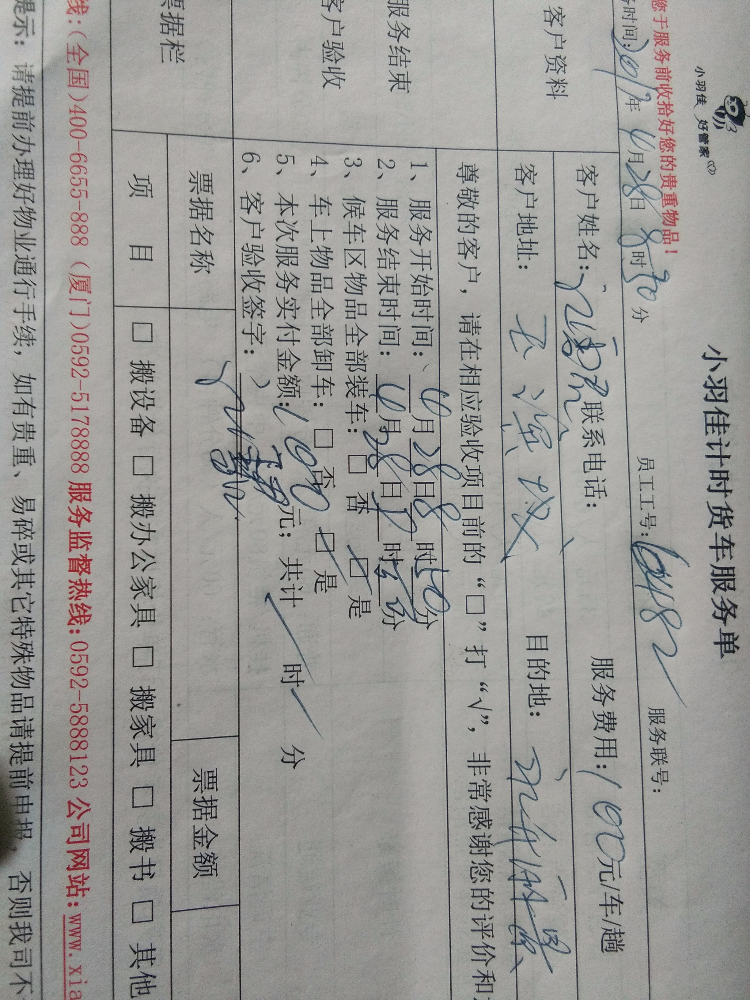 小羽佳 好管家
小羽佳计时货车服务单
您于服务前收拾好您的贵重物品！
务时间：2017年4月28日8时30分 员工工号：6482 服务联号：
客户资料
客户姓名： 联系电话： 服务费用：100元/车/趟
客户地址： 目的地：
服务结束
客户验收
尊敬的客户，请在相应验收项目前的“□”打“√”，非常感谢您的评价和
1、服务开始时间：4月28日8时50分
2、服务结束时间：4月28日9时 分
3、候车区物品全部装车：□ 否 ☑ 是
4、车上物品全部卸车：□ 否 ☑ 是
5、本次服务实付金额：100元；共计 时 分
6、客户验收签字：
票据栏
票据名称 票据金额
项 目 □ 搬设备 □ 搬办公家具 □ 搬家具 □ 搬书 □ 其他
线：(全国)400-6655-888 (厦门)0592-5178888 服务监督热线：0592-5888123 公司网站：www.xia
提示：请提前办理好物业通行手续，如有贵重、易碎或其它特殊物品请提前申报，否则我司不